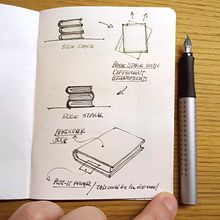 BOOK STACK
BOOK STACK WITH
DIFFERENT
ORIENTATIONS
BOOK STACK
HARDCOVER
BOOK
POST-IT MARKER / This could be